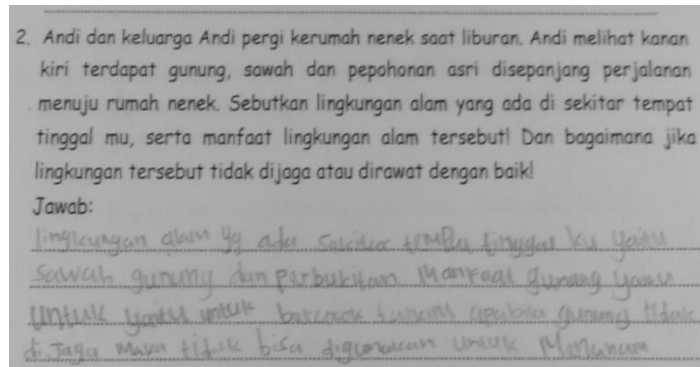 2. Andi dan keluarga Andi pergi kerumah nenek saat liburan. Andi melihat kanan
kiri terdapat gunung, sawah dan pepohonan asri disepanjang perjalanan
menuju rumah nenek. Sebutkan lingkungan alam yang ada di sekitar tempat
tinggal mu, serta manfaat lingkungan alam tersebut! Dan bagaimana jika
lingkungan tersebut tidak dijaga atau dirawat dengan baik!
Jawab:
lingkungan alam yg ada tinggal ku yaitu
sawah gunung dan perbukitan Manfaat gunung
Untuk yaitu untuk bercocok tanam apabila gunung tidak
di Jaga Maka tidak bisa digunakan untuk Menanam